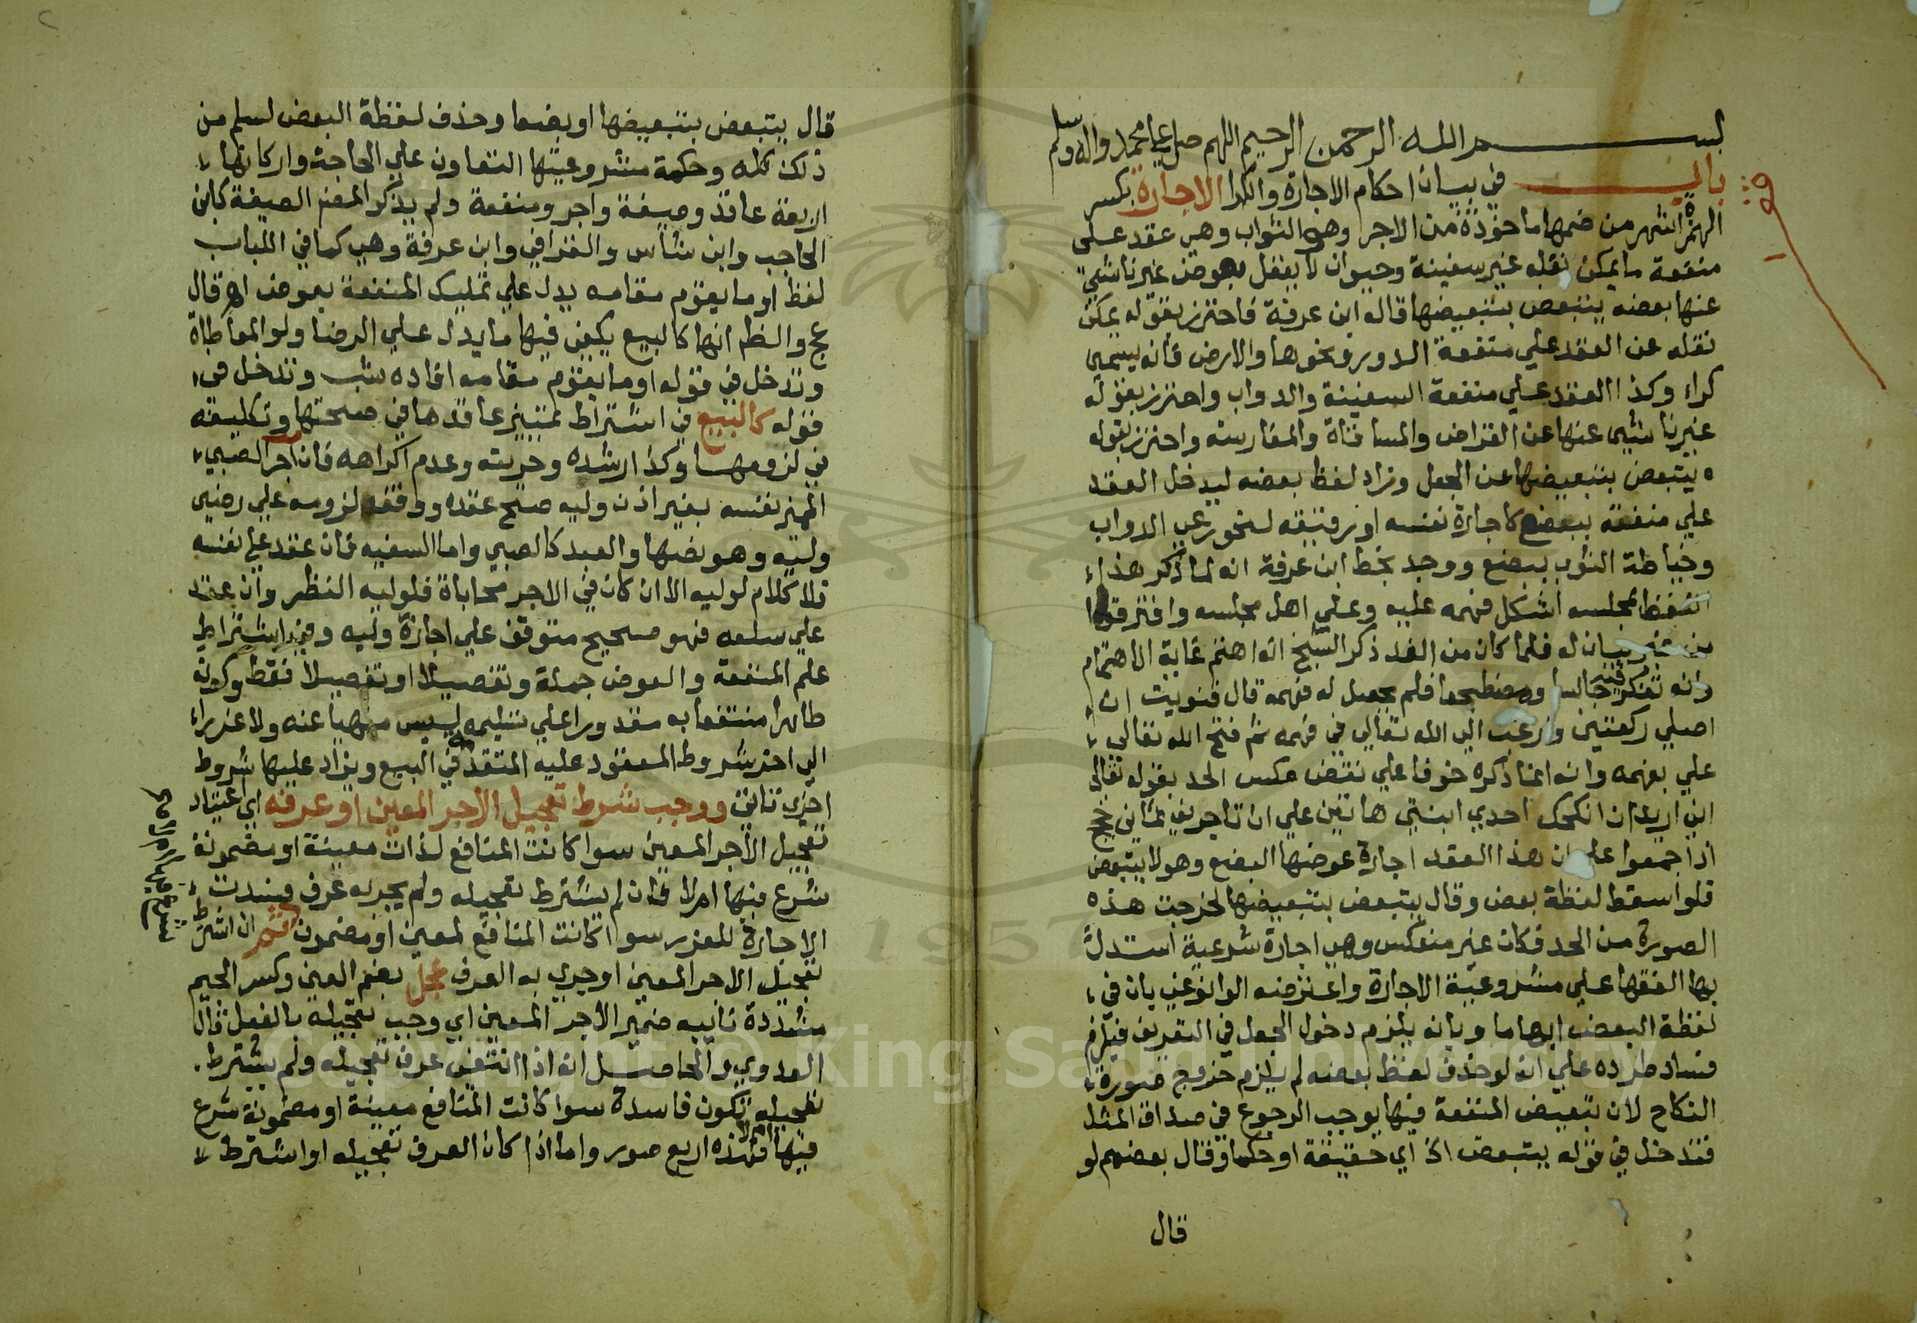 بسم الله الرحمن الرحيم اللهم صل على محمد واله وسلم
باب في بيان احكام الاجارة والكرا الاجارة بكسر
الهمزة اشهر من ضمها ماخوذة من الاجر وهو الثواب وهي عقد على
منفعة ما يمكن نقله غير سفينة وحيوان لا يعقل بعوض غير ناشي
عنها بعضه يتبعض بتبعيضها قاله ابن عرفة فاحترز بقوله يمكن
نقله عن العقد على منفعة الدور ونحوها والارض فانه يسمى
كراء وكذا العقد على منفعة السفينة والدواب واحترز بقوله
غير ناشي عنها عن القراض والمساقاة والمغارسة واحترز بقوله
يتبعض بتبعيضها عن الجعل وزاد لفظ بعضه ليدخل العقد
على منفعة ببضع كاجارة نفسه او رقيقه لنحو رعي الدواب
وخياطة الثوب ببضع ووجد بخط ابن عرفة انه لما ذكر هذا
اللفظ لمجلسه اشكل فهمه عليه وعلى اهل مجلسه وافترقوا
من غير بيان له فلما كان من الغد ذكر الشيخ انه اهتم غاية الاهتمام
وانه تفكر فيه جالسا ومضطجعا فلم يحصل له فهمه قال فنويت ان
اصلي ركعتين وارغب الى الله تعالى في فهمه ثم فتح الله تعالى
علي بفهمه وانه انما ذكره خوفا على نقض عكس الحد بقوله تعالى
اني اريد ان انكحك احدى ابنتي هاتين على ان تاجرني ثماني حجج
اذ اجمعوا على ان هذا العقد اجارة عوضها البضع وهو لا يتبعض
فلو اسقط لفظة بعض وقال يتبعض بتبعيضها لخرجت هذه
الصورة من الحد فكان غير منعكس وهي اجارة شرعية استدل
بها الفقها على مشروعية الاجارة واعترضه الوانوغي بان في
لفظة البعض ابهاما وبانه يلزم دخول الجعل في التعريف فيلزم
فساد طرده على انه لو حذف لفظ بعضه لم يلزم خروج صورة
النكاح لان تبعيض المنفعة فيها يوجب الرجوع في صداق المثل
فتدخل في قوله يتبعض اذ اي حقيقة او حكما وقال بعضهم لو
قال
قال يتبعض بتبعيضها او بضعا وحذف لفظة البعض لسلم من
ذلك كله وحكمة مشروعيتها التعاون على الحاجة واركانها
اربعة عاقد وصيغة واجر ومنفعة ولم يذكر المص الصيغة كابن
الحاجب وابن شاس والقرافي وابن عرفة وهي كما في اللباب
لفظ او ما يقوم مقامه يدل على تمليك المنفعة بعوض اهـ قال
عج والظ انها كالبيع يكفي فيها ما يدل على الرضا ولو المعاطاة
وتدخل في قوله او ما يقوم مقامه افاده شب وتدخل في
قوله كالبيع في اشتراط تمييز عاقدها في صحتها وتكليفه
في لزومها وكذا رشده وحريته وعدم اكراهه فان اجر الصبي
المميز نفسه بغير اذن وليه صح عقده ووقف لزومه على رضى
وليه وهو نصها والعبد كالصبي واما السفيه فان عقد على نفسه
فلا كلام لوليه الا ان كان في الاجر محاباة فلوليه النظر وان عقد
على سلعه فهو صحيح متوقف على اجازة وليه وفي اشتراط
علم المنفعة والعوض جملة وتفصيلا او تفصيلا فقط وكونه
طاهرا منتفعا به مقدورا على تسليمه ليس منهيا عنه ولا غررا
الى اخر شروط المعقود عليه المتقدمة في البيع ويزاد عليها شروط
اخرى تاتي ووجب شرط تعجيل الاجر المعين او عرفه اي اعتياد
تعجيل الاجر المعين سوا كانت المنافع لذات معينة او مضمونة
شرع فيها ام لا فان لم يشترط تعجيله ولم يجر به عرف فسدت
الاجارة للغرر سوا كانت المنافع لمعين او مضمون ان اشترط
تعجيل الاجر المعين او جرى به العرف عجل بضم العين وكسر الجيم
مشددة نائبه ضمير الاجر المعين اي وجب تعجيله بالفعل قال
العدوي والحاصل انه اذا انتفى عرف تعجيله ولم يشترط
تعجيله تكون فاسدة سوا كانت المنافع معينة او مضمونة شرع
فيها ام لا فهذه اربع صور واما اذا كان العرف تعجيله او اشترط